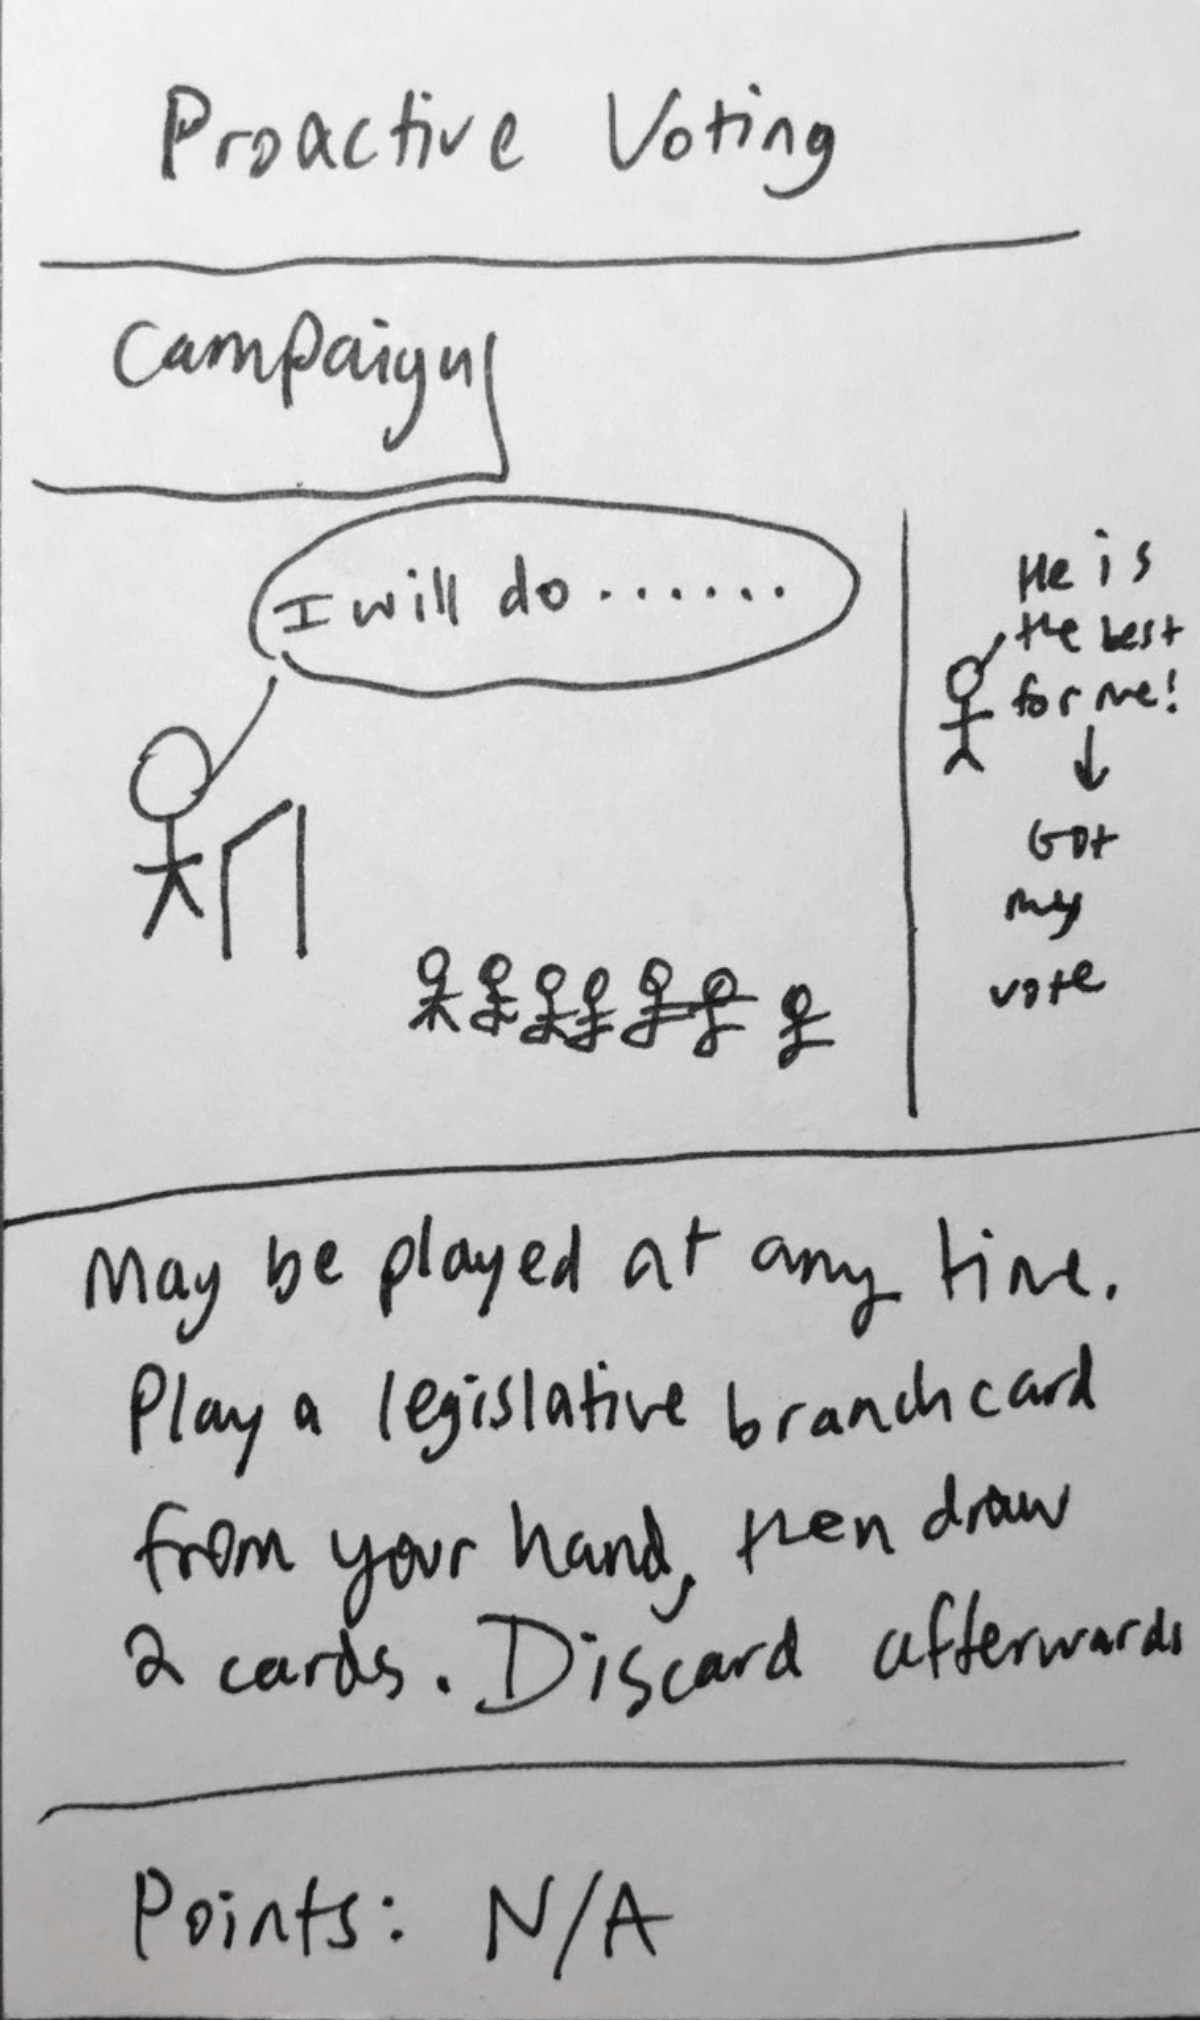 Proactive Voting
Campaign
I will do .......
He is
the best
for me!
Got
my
vote
May be played at any time.
Play a legislative branch card
from your hand, then draw
2 cards. Discard afterwards
Points: N/A